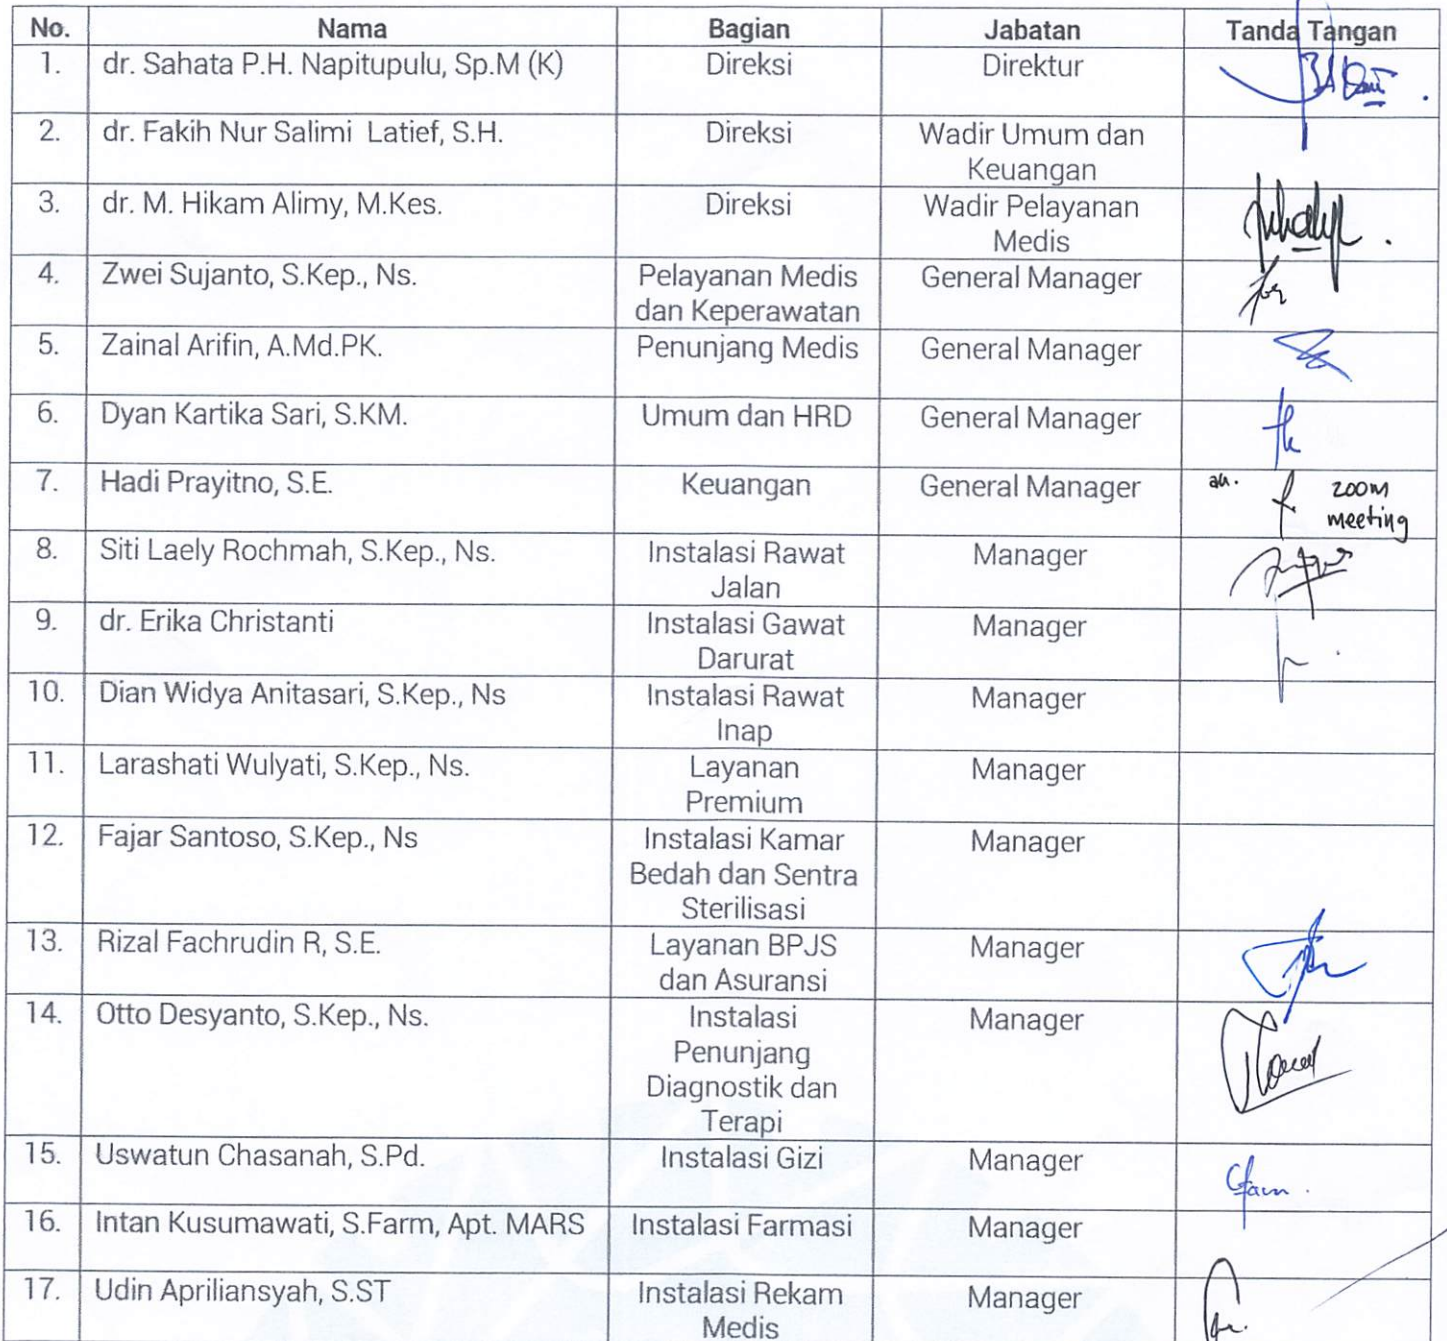 No. Nama Bagian Jabatan Tanda Tangan
1. dr. Sahata P.H. Napitupulu, Sp.M (K) Direksi Direktur
2. dr. Fakih Nur Salimi Latief, S.H. Direksi Wadir Umum dan
Keuangan
3. dr. M. Hikam Alimy, M.Kes. Direksi Wadir Pelayanan
Medis
4. Zwei Sujanto, S.Kep., Ns. Pelayanan Medis General Manager
dan Keperawatan
5. Zainal Arifin, A.Md.PK. Penunjang Medis General Manager
6. Dyan Kartika Sari, S.KM. Umum dan HRD General Manager
7. Hadi Prayitno, S.E. Keuangan General Manager an. zoom
meeting
8. Siti Laely Rochmah, S.Kep., Ns. Instalasi Rawat Manager
Jalan
9. dr. Erika Christanti Instalasi Gawat Manager
Darurat
10. Dian Widya Anitasari, S.Kep., Ns Instalasi Rawat Manager
Inap
11. Larashati Wulyati, S.Kep., Ns. Layanan Manager
Premium
12. Fajar Santoso, S.Kep., Ns Instalasi Kamar Manager
Bedah dan Sentra
Sterilisasi
13. Rizal Fachrudin R, S.E. Layanan BPJS Manager
dan Asuransi
14. Otto Desyanto, S.Kep., Ns. Instalasi Manager
Penunjang
Diagnostik dan
Terapi
15. Uswatun Chasanah, S.Pd. Instalasi Gizi Manager
16. Intan Kusumawati, S.Farm, Apt. MARS Instalasi Farmasi Manager
17. Udin Apriliansyah, S.ST Instalasi Rekam Manager
Medis